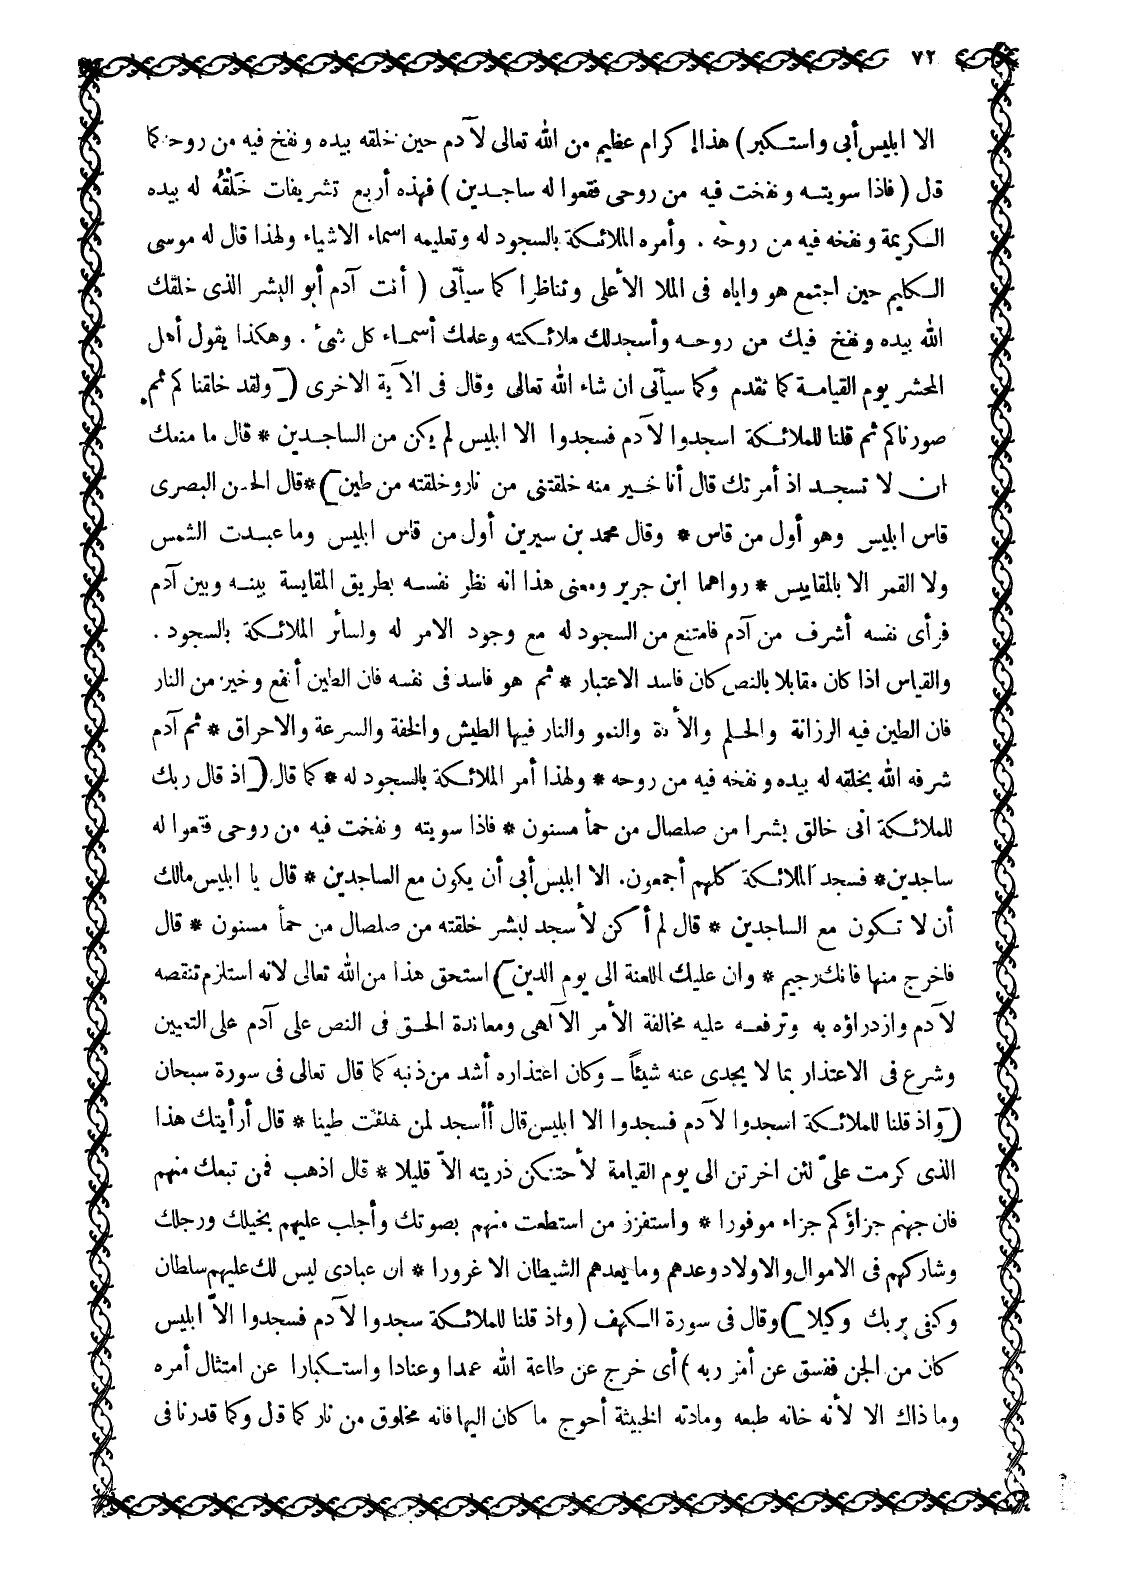 ٧٢
الا ابليس أبى واستكبر ) هذا إكرام عظيم من الله تعالى لآدم حين خلقه بيده ونفخ فيه من روحه كما
قال ( فاذا سويته ونفخت فيه من روحى فقعوا له ساجدين ) فهذه أربع تشريفات خَلْقُه له بيده
الكريمة ونفخه فيه من روحه . وأمره الملائكة بالسجود له وتعليمه اسماء الاشياء ولهذا قال له موسى
الكليم حين اجتمع هو واياه فى الملا الأعلى وتناظرا كما سيأتى ( أنت آدم أبو البشر الذى خلقك
الله بيده ونفخ فيك من روحه وأسجد لك ملائكته وعلمك أسماء كل شئ . وهكذا يقول أهل
المحشر يوم القيامة كما تقدم وكما سيأتى ان شاء الله تعالى وقال فى الآية الاخرى ( ولقد خلقناكم ثم
صورناكم ثم قلنا للملائكة اسجدوا لآدم فسجدوا الا ابليس لم يكن من الساجدين * قال ما منعك
ان لا تسجد اذ أمرتك قال أنا خير منه خلقتنى من نار وخلقته من طين ) * قال الحسن البصرى
قاس ابليس وهو أول من قاس * وقال محمد بن سيرين أول من قاس ابليس وما عبدت الشمس
ولا القمر الا بالمقاييس * رواهما ابن جرير ومعنى هذا انه نظر نفسه بطريق المقايسة بينه وبين آدم
فرأى نفسه أشرف من آدم فامتنع من السجود له مع وجود الامر له ولسائر الملائكة بالسجود .
والقياس اذا كان مقابلا بالنص كان فاسد الاعتبار * ثم هو فاسد فى نفسه فان الطين أنفع وخير من النار
فان الطين فيه الرزانة والحلم والأناة والنمو والنار فيها الطيش والخفة والسرعة والاحراق * ثم آدم
شرفه الله بخلقه له بيده ونفخه فيه من روحه * ولهذا أمر الملائكة بالسجود له * كما قال ( اذ قال ربك
للملائكة انى خالق بشرا من صلصال من حمأ مسنون * فاذا سويته ونفخت فيه من روحى فقعوا له
ساجدين * فسجد الملائكة كلهم أجمعون. الا ابليس أبى أن يكون مع الساجدين * قال يا ابليس مالك
أن لا تكون مع الساجدين * قال لم أكن لأسجد لبشر خلقته من صلصال من حمأ مسنون * قال
فاخرج منها فانك رجيم * وان عليك اللعنة الى يوم الدين ) استحق هذا من الله تعالى لانه استلزم تنقصه
لآدم وازدراؤه به وترفعه عليه مخالفة الأمر الآلهى ومعاندة الحق فى النص على آدم على التعيين
وشرع فى الاعتذار بما لا يجدى عنه شيئاً - وكان اعتذاره أشد من ذنبه كما قال تعالى فى سورة سبحان
( واذ قلنا للملائكة اسجدوا لآدم فسجدوا الا ابليس قال أأسجد لمن خلقت طينا * قال أرأيتك هذا
الذى كرمت علىّ لئن اخرتن الى يوم القيامة لأحتنكن ذريته الاّ قليلا * قال اذهب فمن تبعك منهم
فان جهنم جزاؤكم جزاء موفورا * واستفزز من استطعت منهم بصوتك وأجلب عليهم بخيلك ورجلك
وشاركهم فى الاموال والاولاد وعدهم وما يعدهم الشيطان الا غرورا * ان عبادى ليس لك عليهم سلطان
وكفى بربك وكيلا ) وقال فى سورة الكهف ( واذ قلنا للملائكة سجدوا لآدم فسجدوا الاّ ابليس
كان من الجن ففسق عن أمر ربه ) أى خرج عن طاعة الله عمدا وعنادا واستكبارا عن امتثال أمره
وما ذاك الا لأنه خانه طبعه ومادته الخبيثة أحوج ما كان اليها فانه مخلوق من نار كما قال وكما قدرنا فى